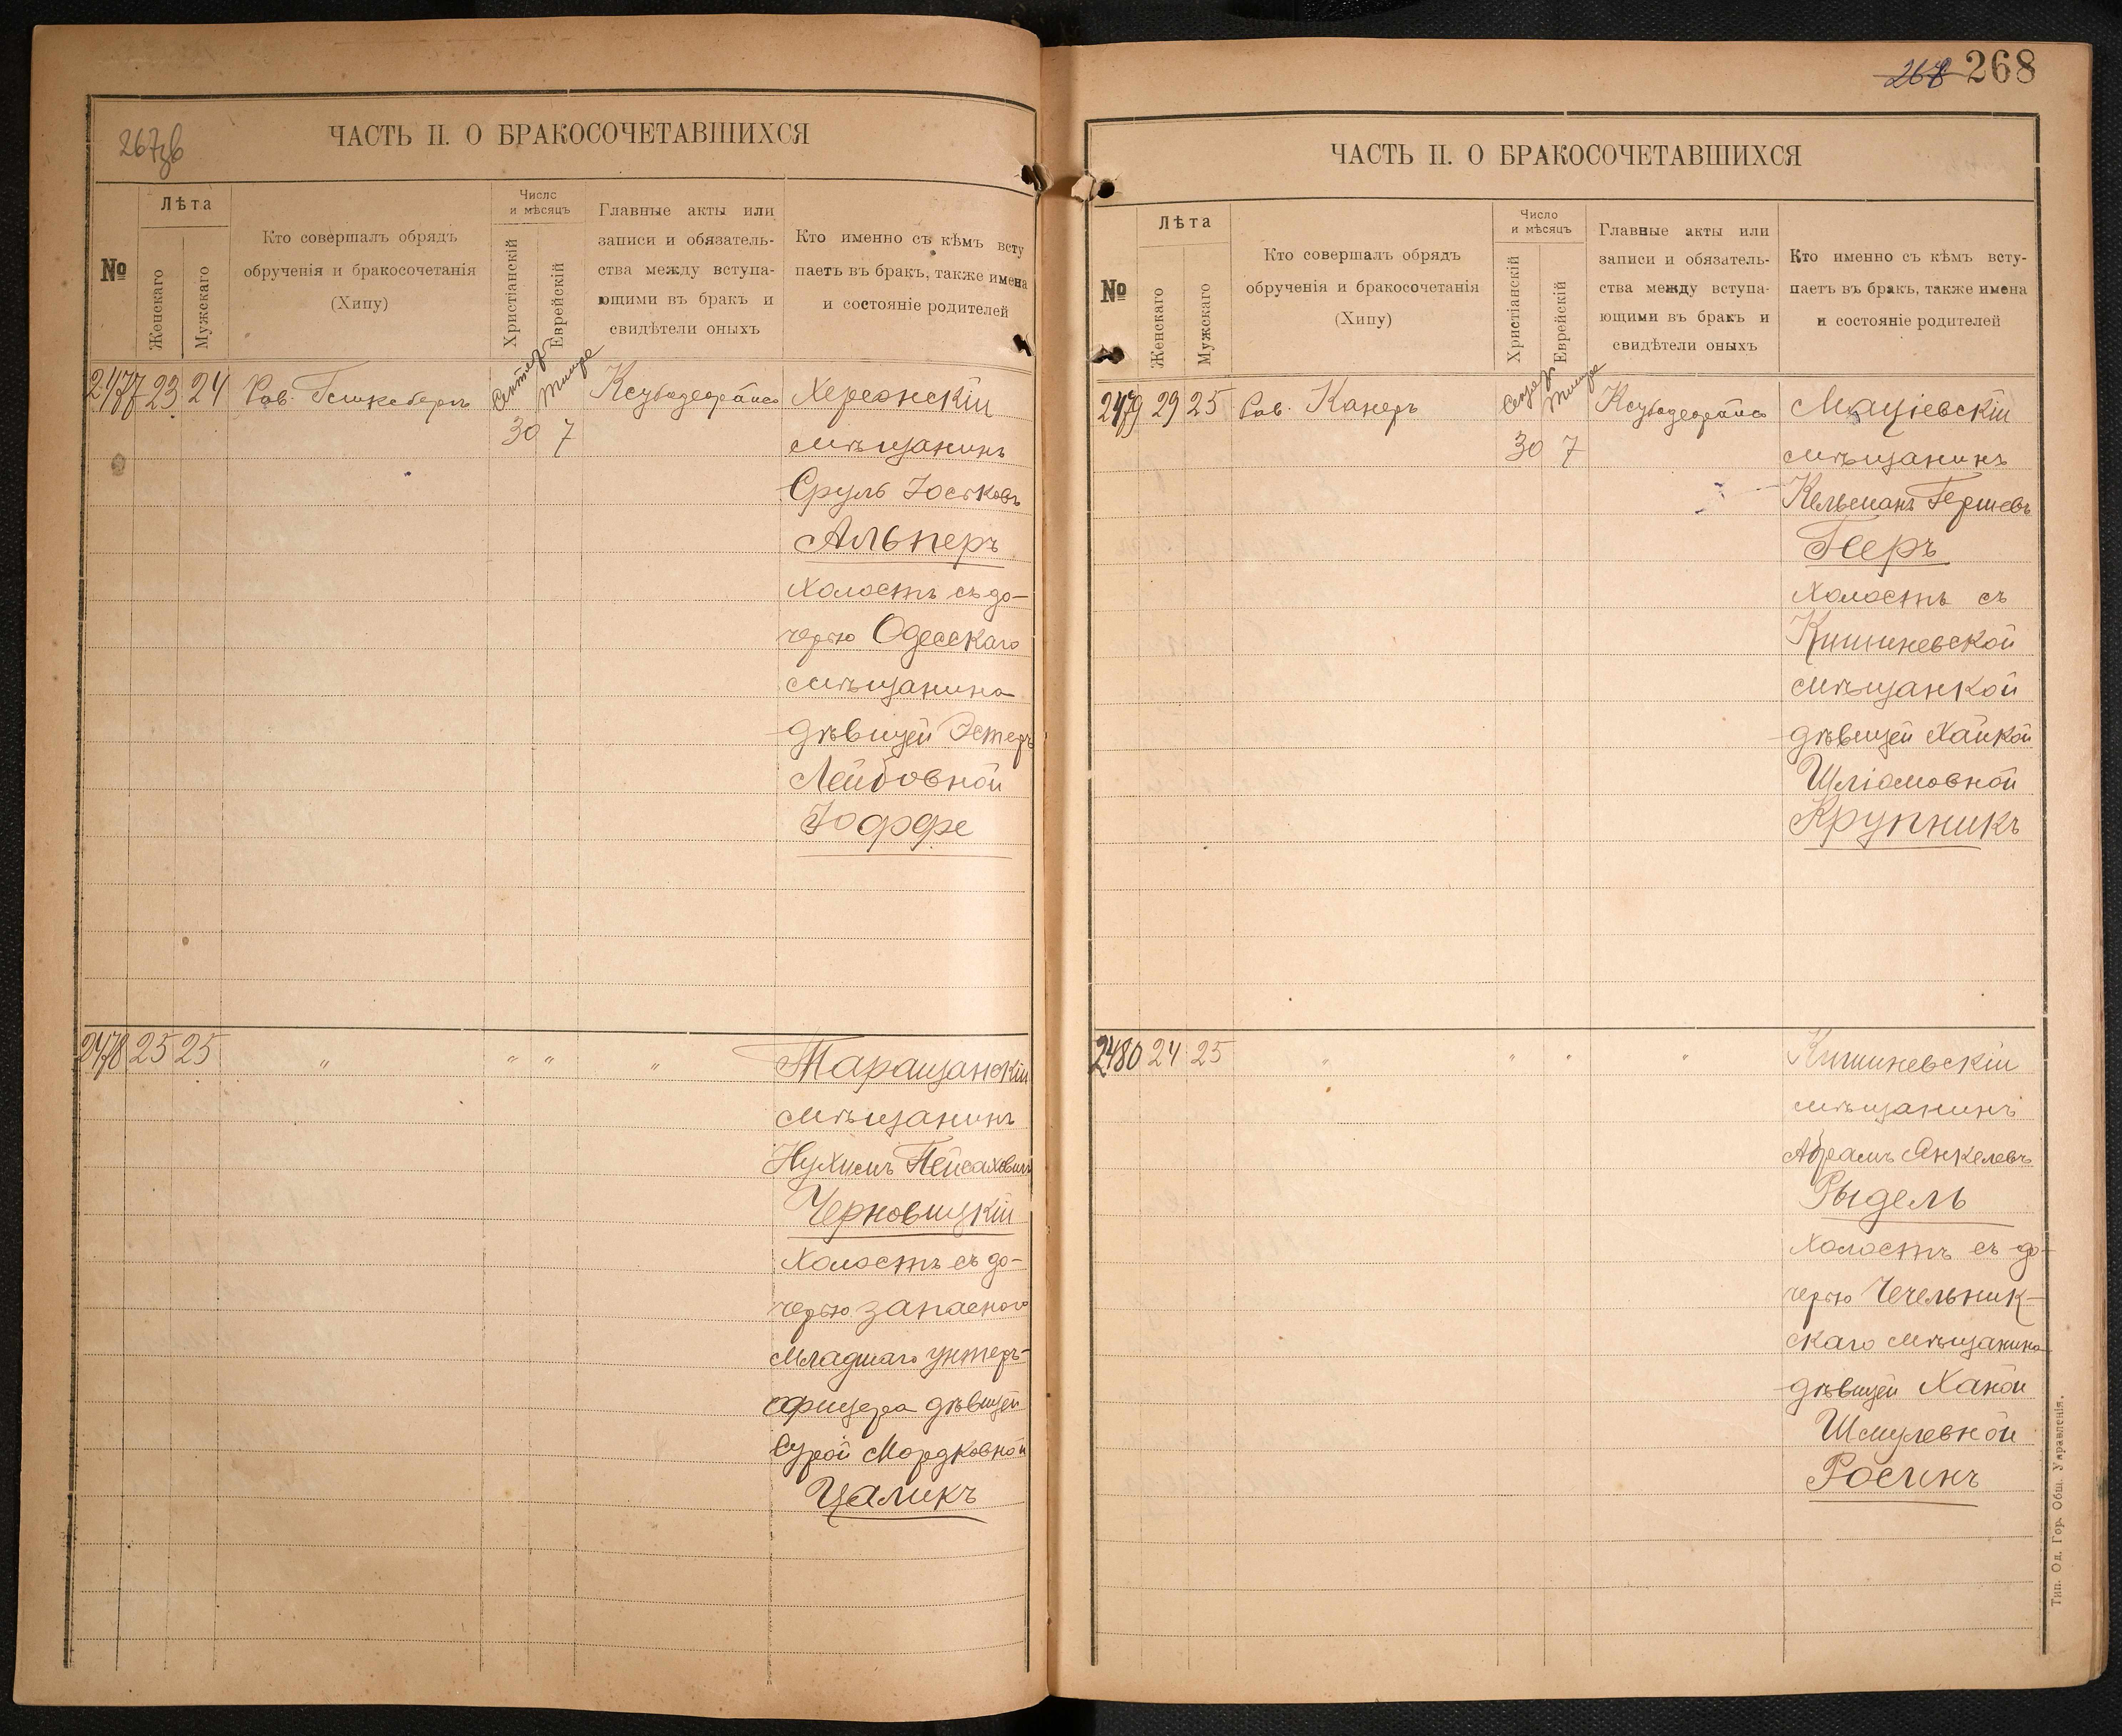 267об
ЧАСТЬ II. О БРАКОСОЧЕТАВШИХСЯ
№
Лѣта
Женскаго
Мужскаго
Кто совершалъ обрядъ
обрученія и бракосочетанія
(Хипу)
Число
и мѣсяцъ
Христіанскій
Еврейскій
Главные акты или
записи и обязатель-
ства между вступа-
ющими въ бракъ и
свидѣтели оныхъ
Кто именно съ кѣмъ всту
паетъ въ бракъ, также имена
и состояніе родителей
2477 23 24 Рав. Сентяб Тишре Херсонскій
30 7 мѣщанинъ
Сруль Іоськовъ
Альперъ
холостъ съ до-
черью Одесскаго
мѣщанина
дѣвицей Эстеръ
Лейбовной
Іоффе
2478 25 25 " " " " Таращанскій
мѣщанинъ
Нухимъ Пейсаховичъ
Черновицкій
холостъ съ до-
черью запаснаго
младшаго унтеръ-
офицера дѣвицей
Сурой Мордковной
Цаликъ
267 268
ЧАСТЬ II. О БРАКОСОЧЕТАВШИХСЯ
№
Лѣта
Женскаго
Мужскаго
Кто совершалъ обрядъ
обрученія и бракосочетанія
(Хипу)
Число
и мѣсяцъ
Христіанскій
Еврейскій
Главные акты или
записи и обязатель-
ства между вступа-
ющими въ бракъ и
свидѣтели оныхъ
Кто именно съ кѣмъ всту-
паетъ въ бракъ, также имена
и состояніе родителей
2479 29 25 Рав. Канеръ Тишре Маціевскій
30 7 мѣщанинъ
Кельманъ Гершевъ
Геръ
холостъ съ
Кишиневской
мѣщанкой
дѣвицей Хайкой
Шліомовной
Крупникъ
2480 24 25 " " " " Кишиневскій
мѣщанинъ
Абрамъ Янкелевъ
Рыдель
холостъ съ до-
черью Чечельник-
скаго мѣщанина
дѣвицей Ханой
Шмулевной
Росинъ
Тип. Од. Гор. Общ. Управленія.